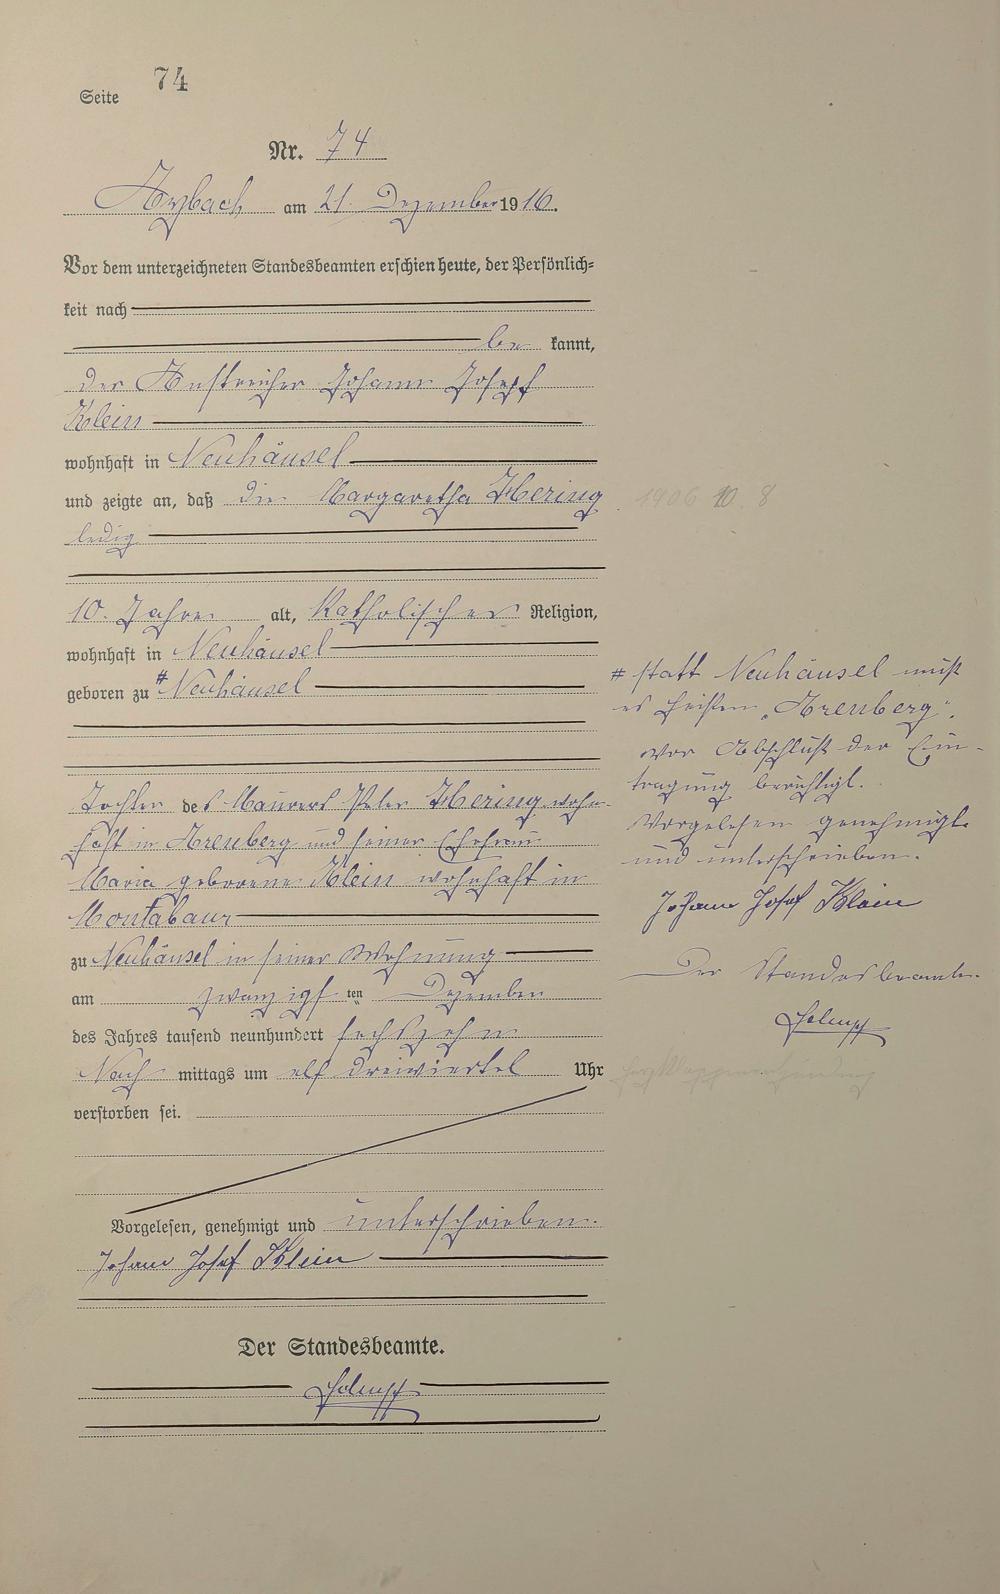 Seite 74
Nr. 74
Arzbach am 21. Dezember 1916.
Vor dem unterzeichneten Standesbeamten erschien heute, der Persönlich=
keit nach
be kannt,
der Anstreicher Johann Josef
Klein
wohnhaft in Neuhäusel
und zeigte an, daß die Margaretha Hering
ledig
10 Jahre alt, Katholischer Religion,
wohnhaft in Neuhäusel
geboren zu # Neuhäusel
Tochter des Maurers Peter Hering wohn-
haft in Arenberg und seiner Ehefrau
Maria geborene Klein wohnhaft in
Montabaur
zu Neuhäusel in seiner Wohnung
am zwanzigsten Dezember
des Jahres tausend neunhundert sechszehn
Nach mittags um elf dreiviertel Uhr
verstorben sei.
Vorgelesen, genehmigt und unterschrieben.
Johann Josef Klein
Der Standesbeamte.
1906 10. 8
# statt Neuhäusel muß
es heißen „Arenberg“.
Vor Abschluß der Ein-
tragung berichtigt.
Vorgelesen genehmigt
und unterschrieben.
Johann Josef Klein
Der Standesbeamte.